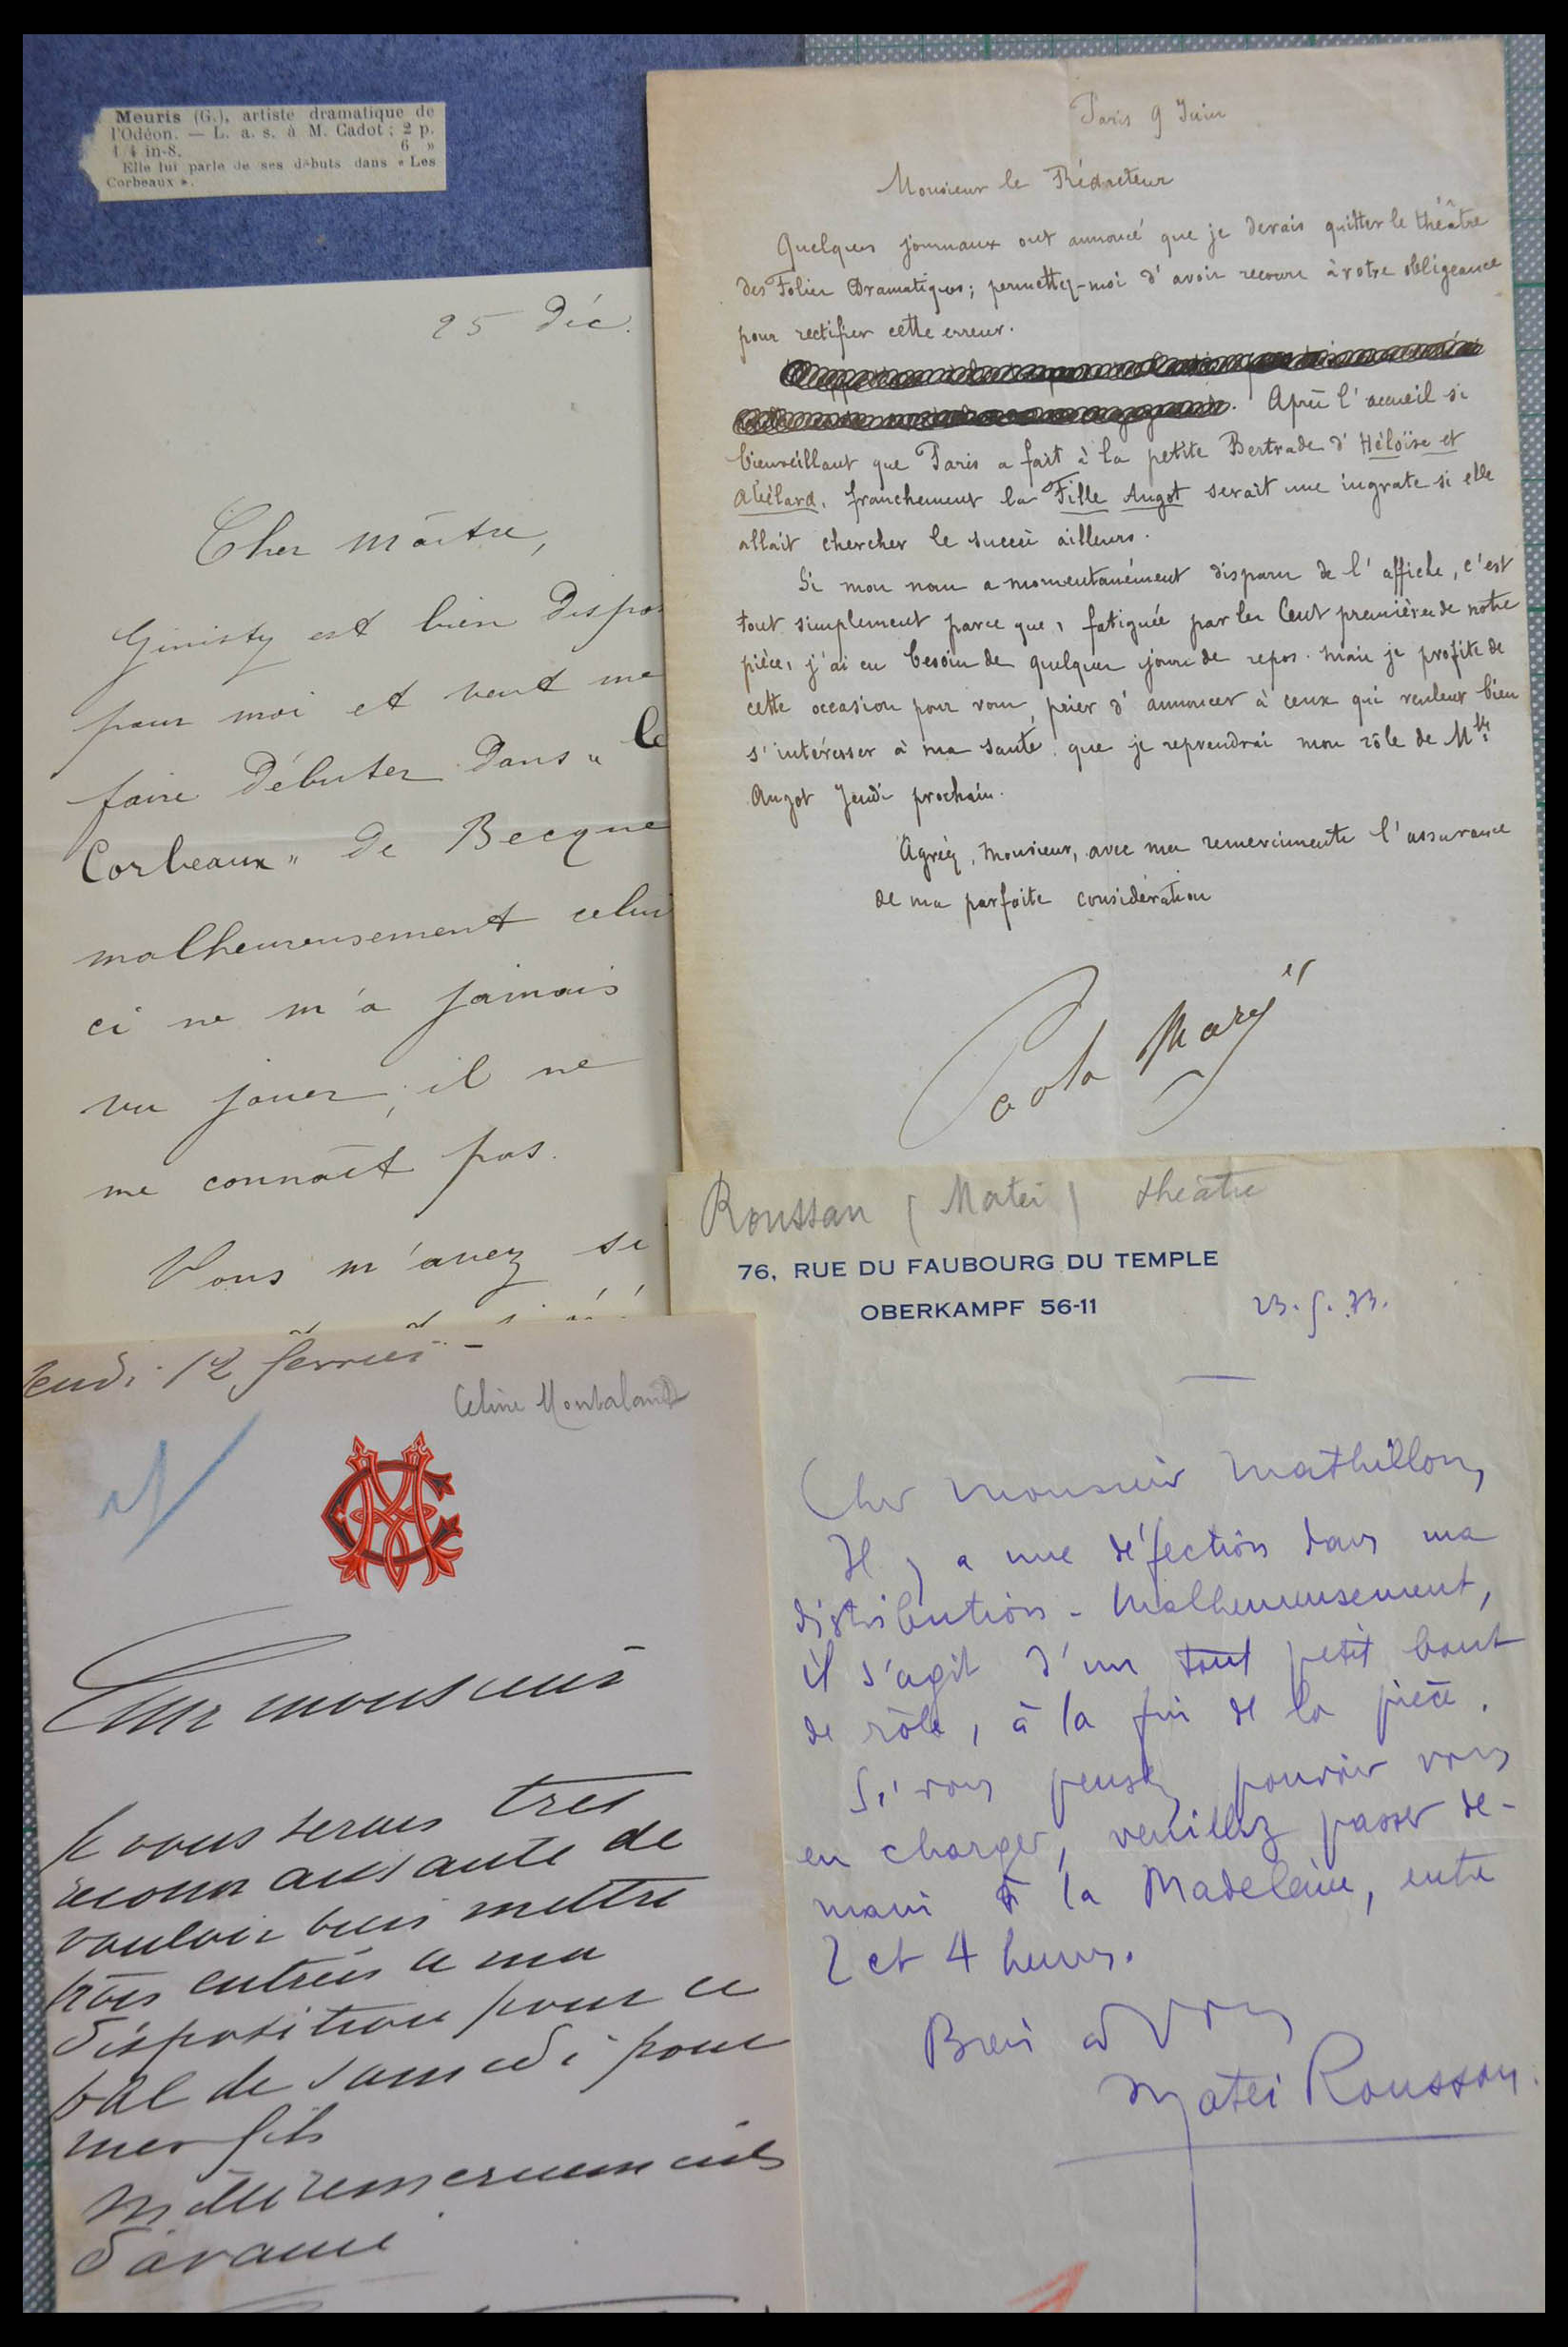 Meuris (G.), artiste dramatique de
l'Odéon. — L. a. s. à M. Cadot ; 2 p.
1/4 in-8. 6 »
Elle lui parle de ses débuts dans « Les
Corbeaux ».
25 Déc.
Cher Maître,
Ginisty est bien dispo
pour moi et veut me
faire Débuter Dans "
Corbeaux" De Becque
malheureusement celui
ci ne m'a jamais
vu jouer, il ne
me connaît pas.
Vous m'avez si
Paris 9 Juin
Monsieur le Rédacteur
Quelques journaux ont annoncé que je devais quitter le théâtre
des Folies Dramatiques; permettez-moi d'avoir recours à votre obligeance
pour rectifier cette erreur.
Après l'accueil si
bienveillant que Paris a fait à la petite Bertrade d'Héloïse et
Abélard, franchement la Fille Angot serait une ingrate si elle
allait chercher le succès ailleurs.
Si mon nom a momentanément disparu de l'affiche, c'est
tout simplement parce que, fatiguée par les Cent premières de notre
pièce, j'ai eu besoin de quelques jours de repos. Mais je profite de
cette occasion pour vous prier d'annoncer à ceux qui veulent bien
s'intéresser à ma santé que je reprendrai mon rôle de Mlle
Angot Jeudi prochain.
Agréez, Monsieur, avec mes remerciments l'assurance
de ma parfaite considération
Paola Marié
Roussan (Matei) théâtre
76, RUE DU FAUBOURG DU TEMPLE
OBERKAMPF 56-11
23.5.33.
Cher Monsieur Mathillon,
Il y a une défection dans ma
distribution - Malheureusement,
il s'agit d'un tout petit bout
de rôle, à la fin de la pièce.
Si vous pensez pouvoir vous
en charger, veuillez passer de-
main à la Madeleine, entre
2 et 4 heures.
Bien à vous
Matei Roussou.
Jeudi 12 fevrier -
Celine Montaland
CM
Cher monsieur
Je vous serais tres
reconnaissante de
vouloir bien mettre
trois entrées a ma
disposition pour le
bal de samedi pour
mes fils
Mille remerciements
d'avance